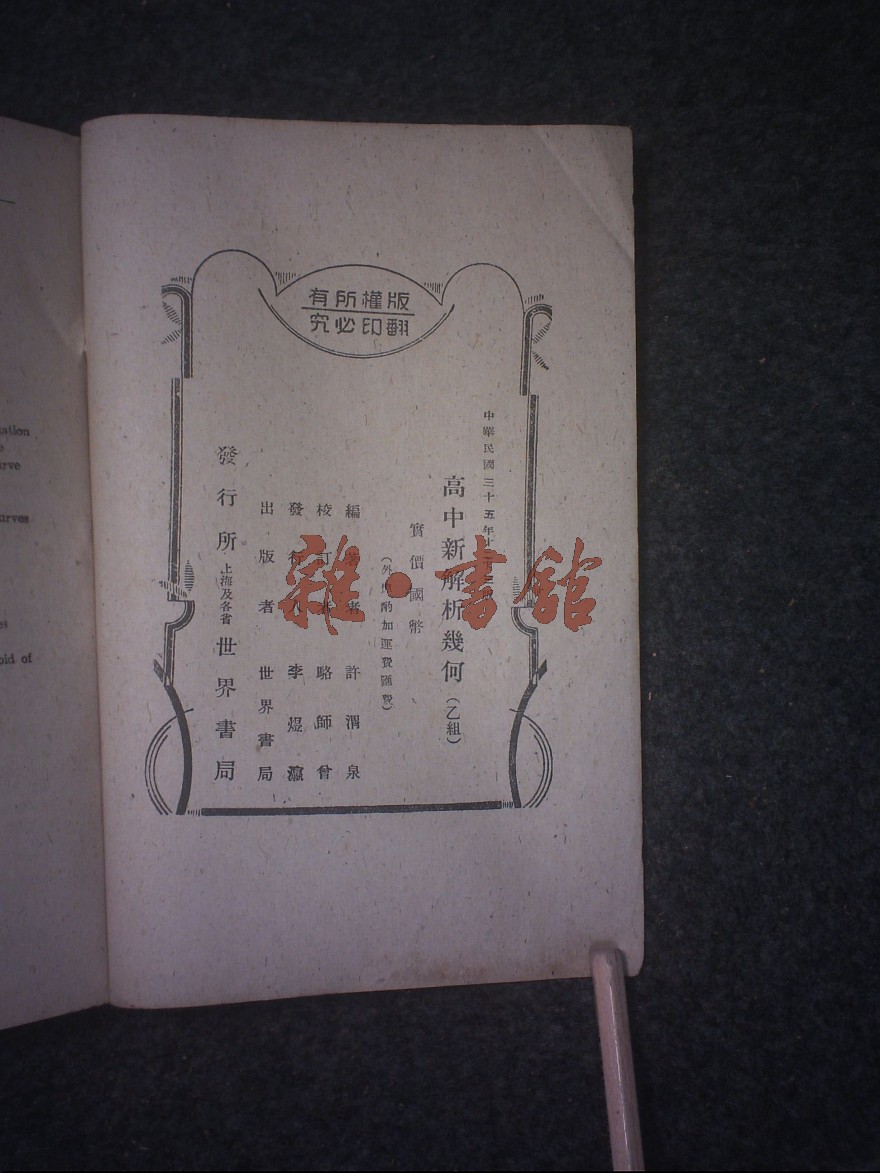 版權所有
翻印必究
中華民國三十五年十
高中新解析幾何(乙組)
實價國幣
(外埠酌加運費匯費)
編著者 許渭泉
校訂者 駱師曾
發行人 李煜瀛
出版者 世界書局
發行所 上海及各省 世界書局
雜·書館
ation
urve
urves
oid of